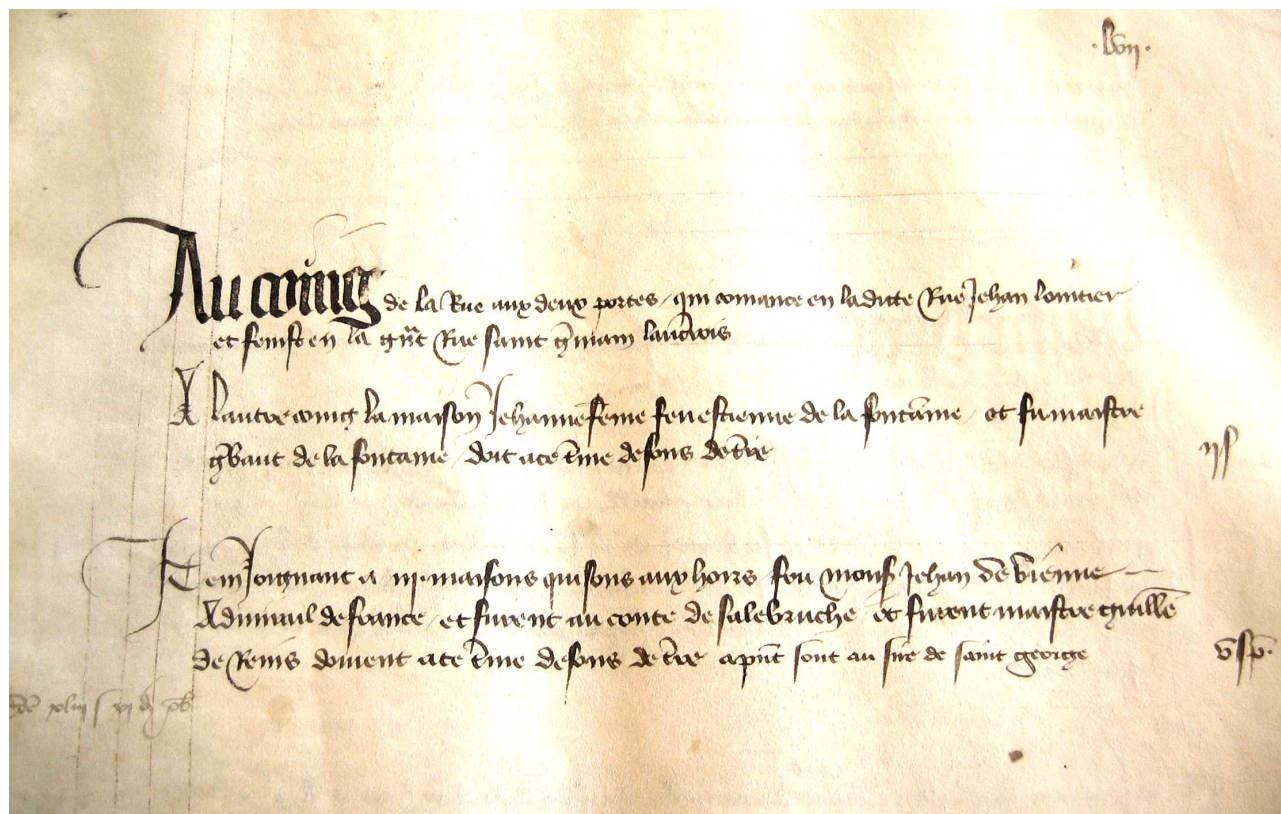 .lvii.
Au coing de la Rue aux deux portes / qui comance en laditte Rue Jehan lointier
et fenist en la gñt Rue saint gmain laucrois
A lautre coing la maison Jehanne feme feu estienne de la fontaine / et fu maistre
gbaut de la fontaine / doit a ce tme de fons de tre ijs
Item Joignant a iij. maisons qui sons aux hoirs feu mons Jehan de vienne
Admiraul de france / et furent au conte de salebruche et furent maistre guille
de Reins doivent a ce tme de fons de tre apnt sont au sire de saint george v s p.